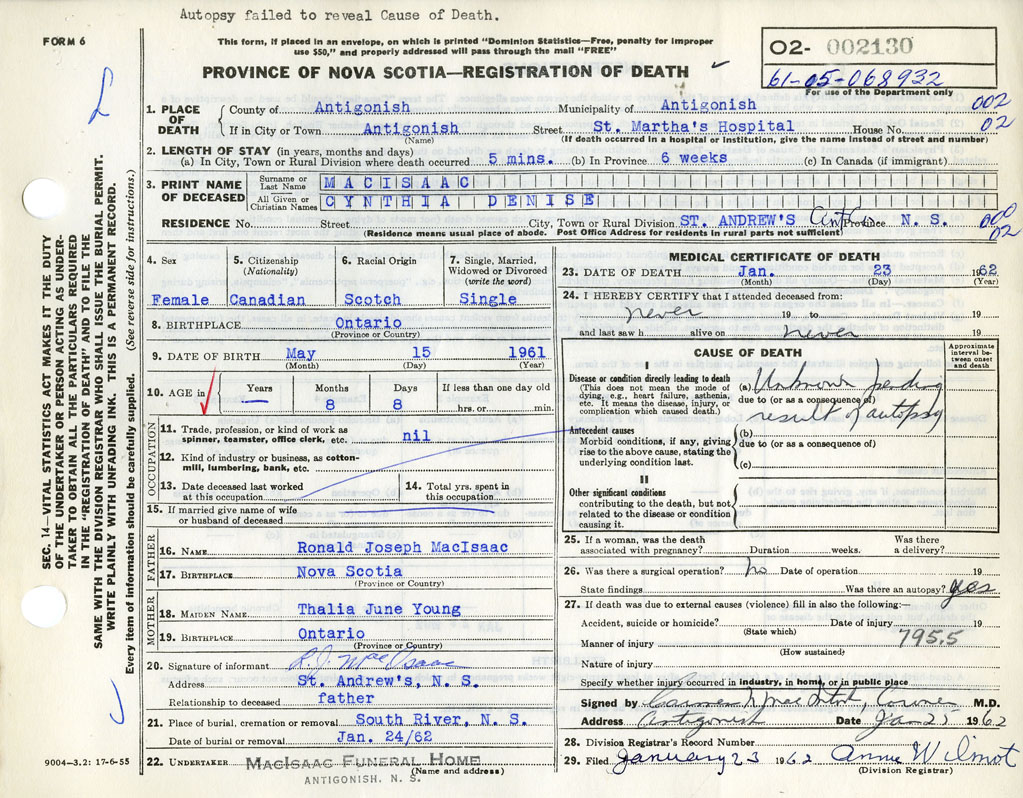 Autopsy failed to reveal Cause of Death.
FORM 6
This form, if placed in an envelope, on which is printed "Dominion Statistics—Free, penalty for improper
use $50," and properly addressed will pass through the mail "FREE"
O2- 002130
61-05-068932
For use of the Department only
PROVINCE OF NOVA SCOTIA—REGISTRATION OF DEATH
SEC. 14—VITAL STATISTICS ACT MAKES IT THE DUTY
OF THE UNDERTAKER OR PERSON ACTING AS UNDER-
TAKER TO OBTAIN ALL THE PARTICULARS REQUIRED
IN THE "REGISTRATION OF DEATH" AND TO FILE THE
SAME WITH THE DIVISION REGISTRAR WHO SHALL ISSUE THE BURIAL PERMIT.
WRITE PLAINLY WITH UNFADING INK. THIS IS A PERMANENT RECORD.
Every item of information should be carefully supplied. (See reverse side for instructions.)
1. PLACE OF DEATH
County of Antigonish Municipality of Antigonish 002
If in City or Town Antigonish Street St. Martha's Hospital House No. 02
(Name) (If death occurred in a hospital or institution, give the name instead of street and number)
2. LENGTH OF STAY (in years, months and days)
(a) In City, Town or Rural Division where death occurred 5 mins. (b) In Province 6 weeks (c) In Canada (if immigrant)
3. PRINT NAME OF DECEASED
Surname or Last Name MACISAAC
All Given or Christian Names CYNTHIA DENISE
RESIDENCE No. Street City, Town or Rural Division ST. ANDREW'S Ant Co. Province N. S. 000
02
(Residence means usual place of abode. Post Office Address for residents in rural parts not sufficient)
4. Sex
Female
5. Citizenship
(Nationality)
Canadian
6. Racial Origin
Scotch
7. Single, Married,
Widowed or Divorced
(write the word)
Single
8. BIRTHPLACE Ontario
(Province or Country)
9. DATE OF BIRTH May 15 1961
(Month) (Day) (Year)
10. AGE in
Years Months Days If less than one day old
— 8 8 hrs. or min.
OCCUPATION
11. Trade, profession, or kind of work as
spinner, teamster, office clerk, etc. nil
12. Kind of industry or business, as cotton-
mill, lumbering, bank, etc.
13. Date deceased last worked
at this occupation
14. Total yrs. spent in
this occupation
15. If married give name of wife
or husband of deceased
FATHER
16. NAME Ronald Joseph MacIsaac
17. BIRTHPLACE Nova Scotia
(Province or Country)
MOTHER
18. MAIDEN NAME Thalia June Young
19. BIRTHPLACE Ontario
(Province or Country)
20. Signature of informant R. J. MacIsaac
Address St. Andrew's, N. S.
Relationship to deceased father
21. Place of burial, cremation or removal South River, N. S.
Date of burial or removal Jan. 24/62
22. UNDERTAKER MACISAAC FUNERAL HOME
(Name and address)
ANTIGONISH, N. S.
9004—3.2: 17-6-55
MEDICAL CERTIFICATE OF DEATH
23. DATE OF DEATH Jan. 23 1962
(Month) (Day) (Year)
24. I HEREBY CERTIFY that I attended deceased from:
never 19 to 19
and last saw h alive on never 19
CAUSE OF DEATH
Approximate
interval be-
tween onset
and death
I
Disease or condition directly leading to death
(This does not mean the mode of
dying, e.g., heart failure, asthenia,
etc. It means the disease, injury, or
complication which caused death.)
(a) Unknown pending
due to (or as a consequence of)
result of autopsy
Antecedent causes
Morbid conditions, if any, giving
rise to the above cause, stating the
underlying condition last.
(b)
due to (or as a consequence of)
(c)
II
Other significant conditions
contributing to the death, but not
related to the disease or condition
causing it.
25. If a woman, was the death
associated with pregnancy? Duration weeks. Was there
a delivery?
26. Was there a surgical operation? no Date of operation 19
State findings Was there an autopsy? yes
27. If death was due to external causes (violence) fill in also the following:—
Accident, suicide or homicide? Date of injury 19
(State which)
795.5
Manner of injury
(How sustained)
Nature of injury
Specify whether injury occurred in industry, in home, or in public place
Signed by M.D.
Address Antigonish Date Jan 25 1962
28. Division Registrar's Record Number
29. Filed January 23 1962 Annie Wilmot
(Division Registrar)